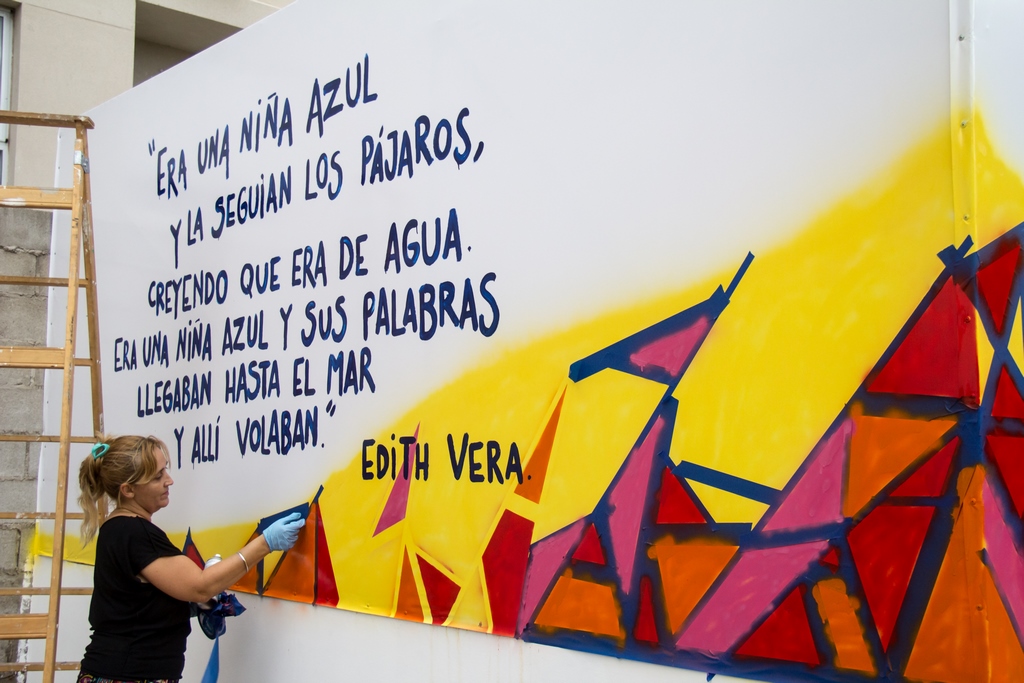 "ERA UNA NIÑA AZUL
Y LA SEGUIAN LOS PÁJAROS,
CREYENDO QUE ERA DE AGUA.
ERA UNA NIÑA AZUL Y SUS PALABRAS
LLEGABAN HASTA EL MAR
Y ALLÍ VOLABAN."
EDITH VERA.